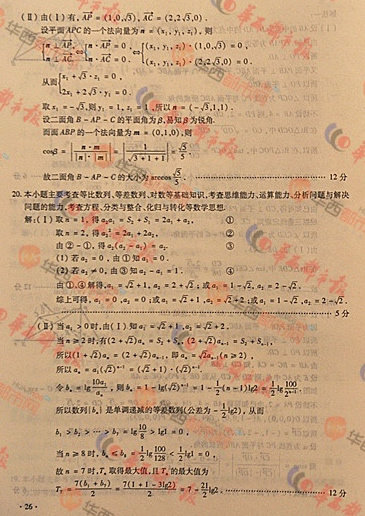 (Ⅱ)由(Ⅰ)有, AP = (1,0,√3), AC = (2,2√3,0).
设平面APC的一个法向量为 n = (x₁,y₁,z₁), 则
{n ⊥ AP, n ⊥ AC ⇔ {n · AP = 0, n · AC = 0 ⇔ {(x₁,y₁,z₁) · (1,0,√3) = 0, (x₁,y₁,z₁) · (2,2√3,0) = 0.
从而{x₁ + √3 · z₁ = 0, 2x₁ + 2√3 · y₁ = 0.
取 x₁ = -√3, 则 y₁ = 1, z₁ = 1, 所以 n = (-√3,1,1).
设二面角 B - AP - C 的平面角为 β, 易知 β 为锐角.
而面 ABP 的一个法向量为 m = (0,1,0), 则
cosβ = |n · m / |n| · |m|| = |1 / √(3+1+1)| = √5/5.
故二面角 B - AP - C 的大小为 arccos √5/5. 12 分
20. 本小题主要考查等比数列、等差数列、对数等基础知识, 考查思维能力、运算能力、分析问题与解决
问题的能力, 考查方程、分类与整合、化归与转化等数学思想.
解:(Ⅰ)取 n = 1, 得 a₂a₁ = S₂ + S₁ = 2a₁ + a₂, ①
取 n = 2, 得 a₂² = 2a₁ + 2a₂. ②
由② - ①, 得 a₂(a₂ - a₁) = a₂. ③
(1) 若 a₂ = 0, 由①知 a₁ = 0.
(2) 若 a₂ ≠ 0, 由③知 a₂ - a₁ = 1. ④
由①、④解得, a₁ = √2 + 1, a₂ = 2 + √2; 或 a₁ = 1 - √2, a₂ = 2 - √2.
综上可得, a₁ = 0, a₂ = 0; 或 a₁ = √2 + 1, a₂ = √2 + 2; 或 a₁ = 1 - √2, a₂ = 2 - √2.
5 分
(Ⅱ)当 a₁ > 0 时, 由(Ⅰ)知 a₁ = √2 + 1, a₂ = √2 + 2,
当 n ≥ 2 时, 有 (2 + √2)aₙ = S₂ + Sₙ, (2 + √2)aₙ₋₁ = S₂ + Sₙ₋₁,
所以 (1 + √2)aₙ = (2 + √2)aₙ₋₁, 即 aₙ = √2aₙ₋₁ (n ≥ 2),
所以 aₙ = a₁(√2)ⁿ⁻¹ = (√2 + 1) · (√2)ⁿ⁻¹.
令 bₙ = lg 10a₁/aₙ, 则 bₙ = 1 - lg(√2)ⁿ⁻¹ = 1 - 1/2(n - 1)lg2 = 1/2 lg 100/2ⁿ⁻¹
所以数列{bₙ}是单调递减的等差数列(公差为 - 1/2 lg2), 从而
b₁ > b₂ > … > b₇ = lg 10/8 > lg1 = 0,
当 n ≥ 8 时, bₙ ≤ b₈ = 1/2 lg 100/128 < 1/2 lg1 = 0,
故 n = 7 时, Tₙ 取得最大值, 且 Tₙ 的最大值为
T₇ = 7(b₁ + b₇)/2 = 7(1 + 1 - 3lg2)/2 = 7 - 21/2 lg2. 12 分
· 26 ·
华西都市报